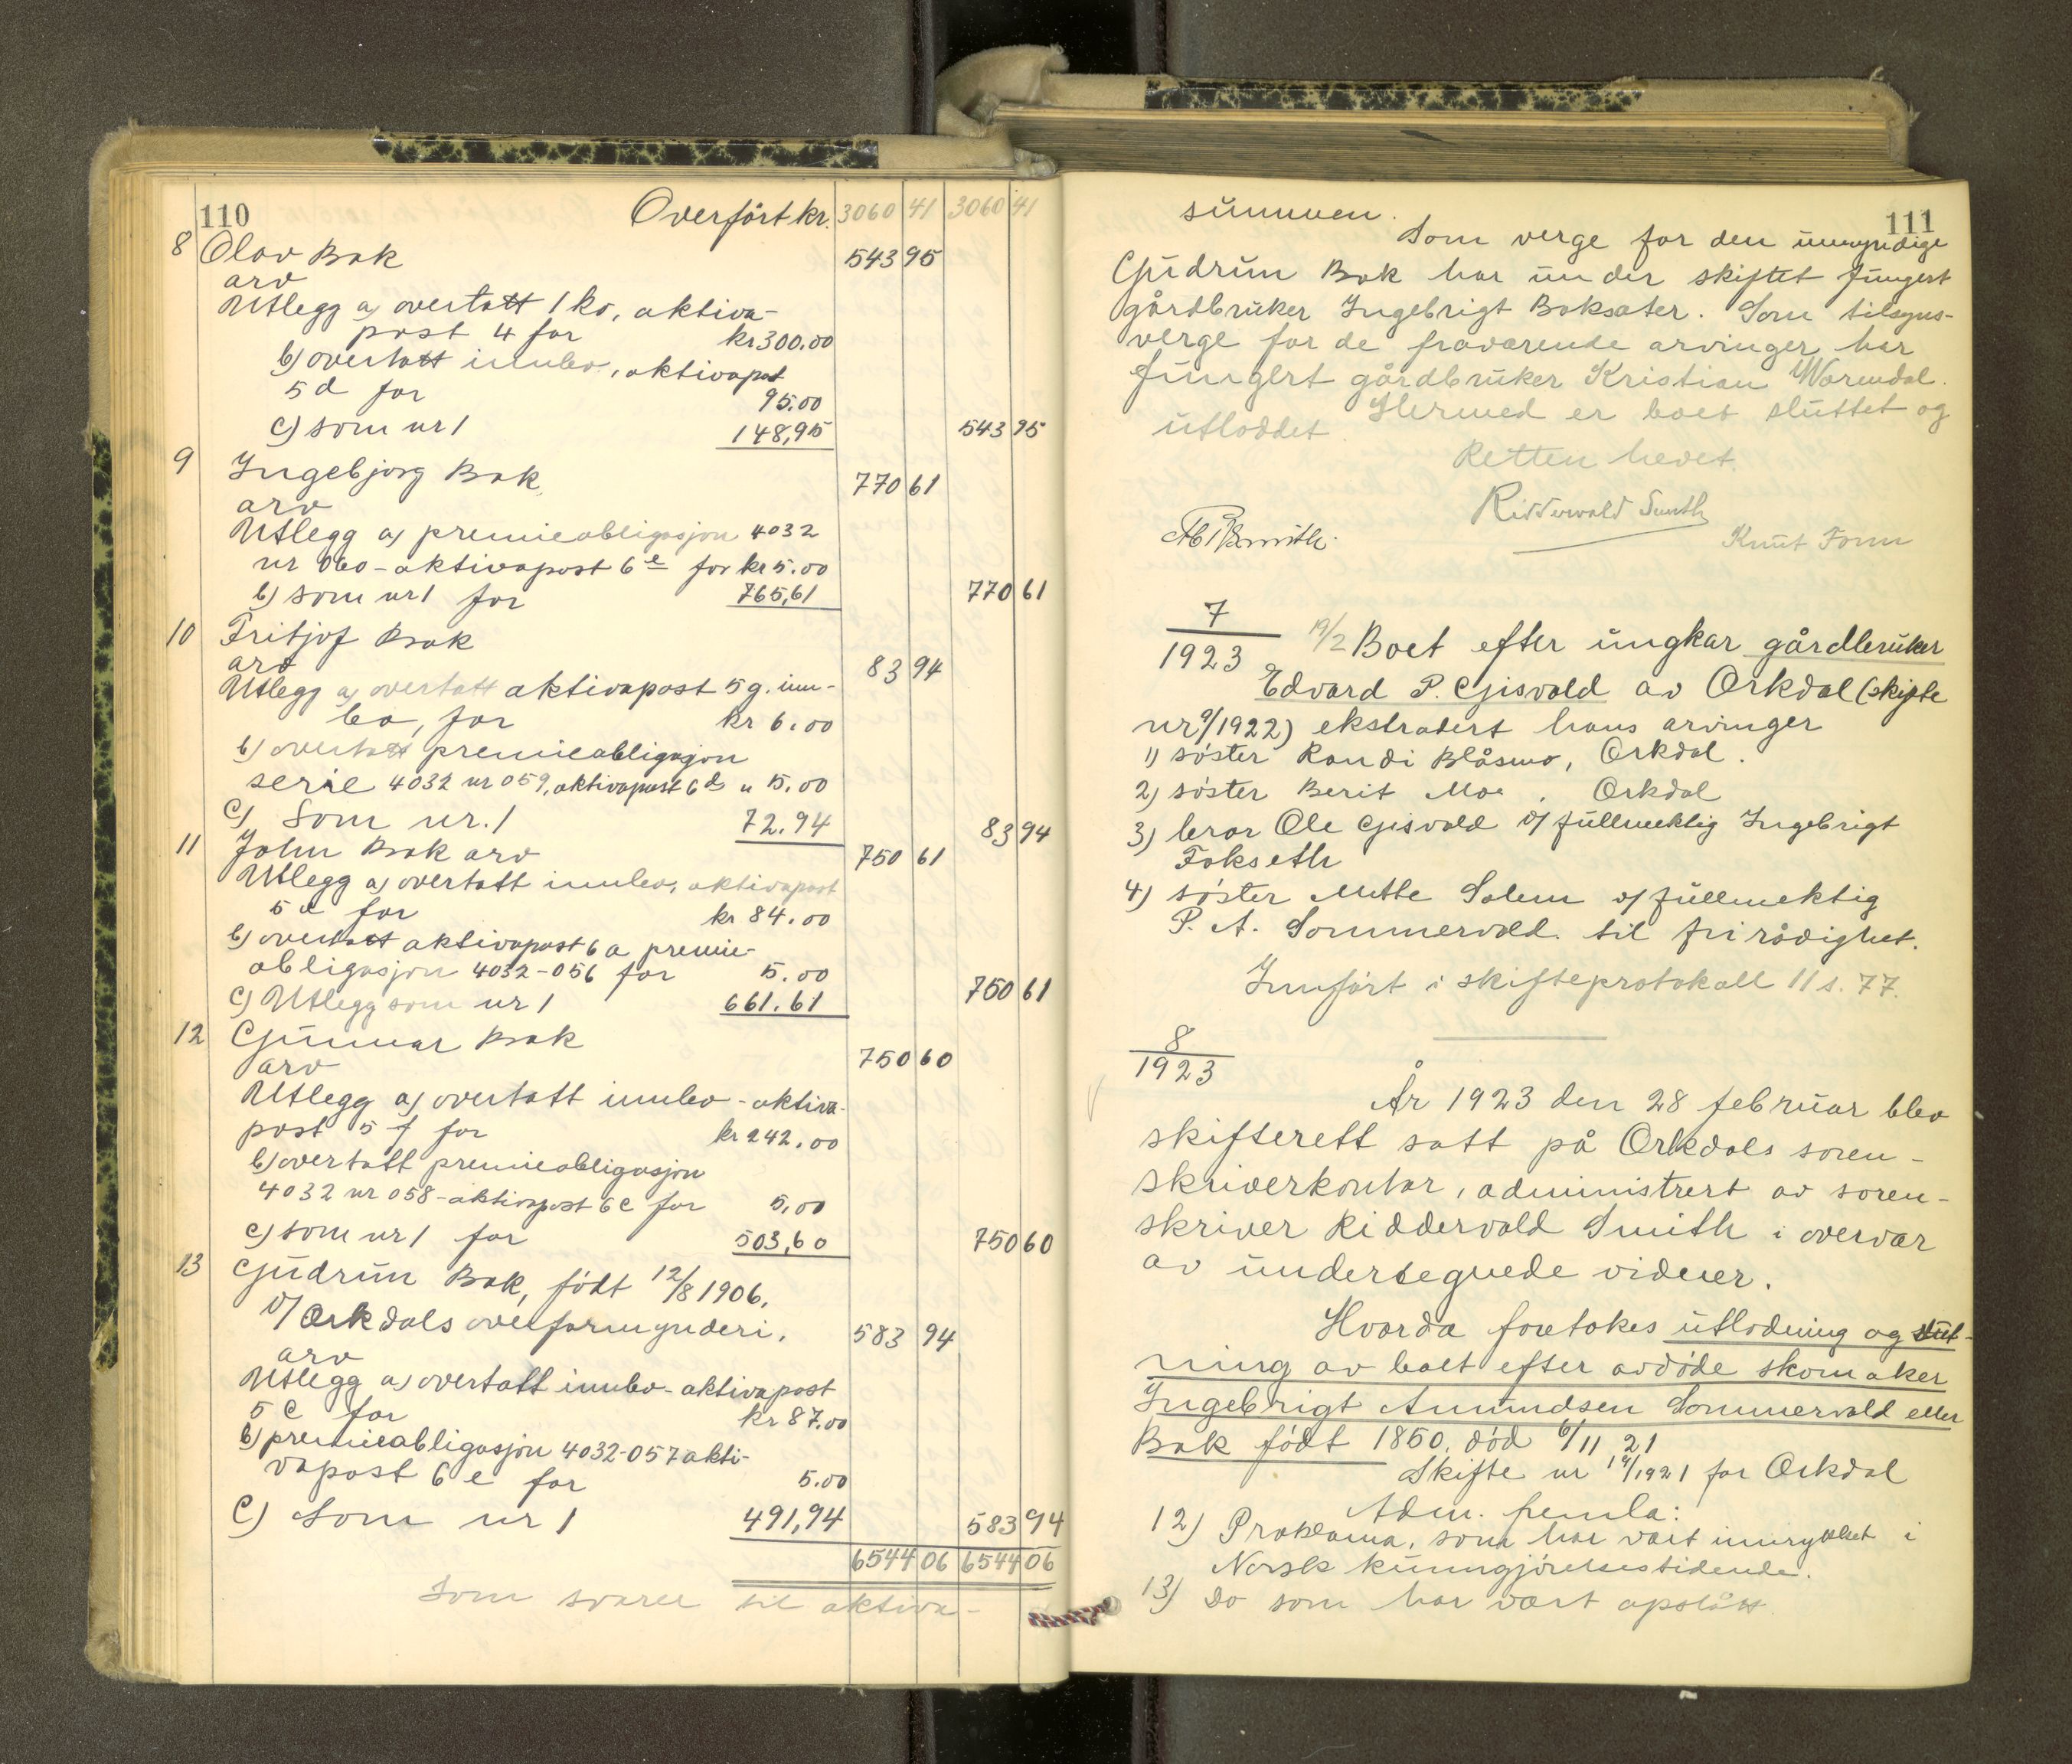 110 Overført kr. 3060 41 3060 41
8 Olav Bak 543 95
arv
Utlegg a) overtatt 1 ko, aktiva-
post 4 for kr 300.00
b) overtatt innbo, aktivapost
5 d for 95.00
c) som nr 1 148,95 543 95
9 Ingebjørg Bak 770 61
arv
Utlegg a) premieobligasjon 4032
nr 060 - aktivapost 6 e for kr 5.00
b) som nr 1 for 765,61 770 61
10 Fritjof Bak
arv 83 94
Utlegg a) overtatt aktivapost 5 g. inn-
bo, for kr 6.00
b) overtatt premieobligasjon
serie 4032 nr 059, aktivapost 6 d " 5.00
c) Som nr. 1 72.94 83 94
11 John Bak arv 750 61
Utlegg a) overtatt innbo, aktivapost
5 a for kr 84.00
b) overtatt aktivapost 6 a premie-
obligasjon 4032-056 for 5.00
c) Utlegg som nr 1 661.61 750 61
12 Gunnar Bak
arv 750 60
Utlegg a) overtatt innbo - aktiva-
post 5 f for kr 242.00
b) overtatt premieobligasjon
4032 nr 058 - aktivapost 6 c for 5,00
c) som nr 1 for 503,60 750 60
13 Gudrun Bak, født 12/8 1906.
v/ Orkdals overformynderi. 583 94
arv
Utlegg a) overtatt innbo - aktivapost
5 c for kr 87.00
b) premieobligasjon 4032-057 akti-
vapost 6 e for 5.00
c) Som nr 1 491,94 583 94
6544 06 6544 06
som svarer til aktiva-
111
summen.
Som verge for den umyndige
Gudrun Bak har under skiftet fungert
gårdbruker Ingebrigt Baksæter. Som tilsyns-
verge for de fraværende arvinger har
fungert gårdbruker Kristian Warndal.
Hermed er boet sluttet og
utloddet.
Retten hevet.
Ridderwold Smith
Knut Form
7
1923
19/2 Boet efter ungkar gårdbruker
Edvard P. Gisvold av Orkdal (skifte
nr 9/1922) ekstradert hans arvinger
1) søster Randi Blåsmo, Orkdal.
2) søster Berit Moe, Orkdal
3) bror Ole Gisvold v/ fullmektig Ingebrigt
Fokseth
4) søster Mette Solem v/ fullmektig
P. A. Sommervold til fri rådighet.
Innført i skifteprotokoll 11 s. 77.
8
1923
År 1923 den 28 februar blev
skifterett satt på Orkdals soren-
skriverkontor, administrert av soren-
skriver Riddervold Smith i overvær
av undertegnede vidner.
Hvorda foretokes utlodning og slut-
ning av boet efter avdøde skomaker
Ingebrigt Amundsen Sommervold eller
Bak født 1850, død 6/11 21
Skifte nr 19/1921 for Orkdal
Adm. fremla:
12) Proklama, som har vært innrykket i
Norsk kunngjørelsestidende.
13) Do som har vært opslått